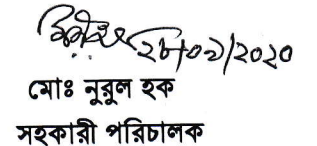 ২৮/০৯/২০২০
মোঃ নুরুল হক
সহকারী পরিচালক